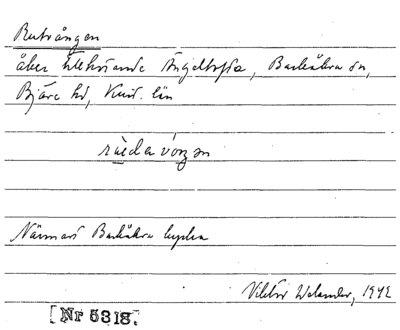 Rutvången
åker tillhörande Ängeltofta, Barkåkra sn,
Bjäre hd, Krist. län
Närmast Barkåkra kyrka
Viktor Welander, 1942
[Nr 5318.]